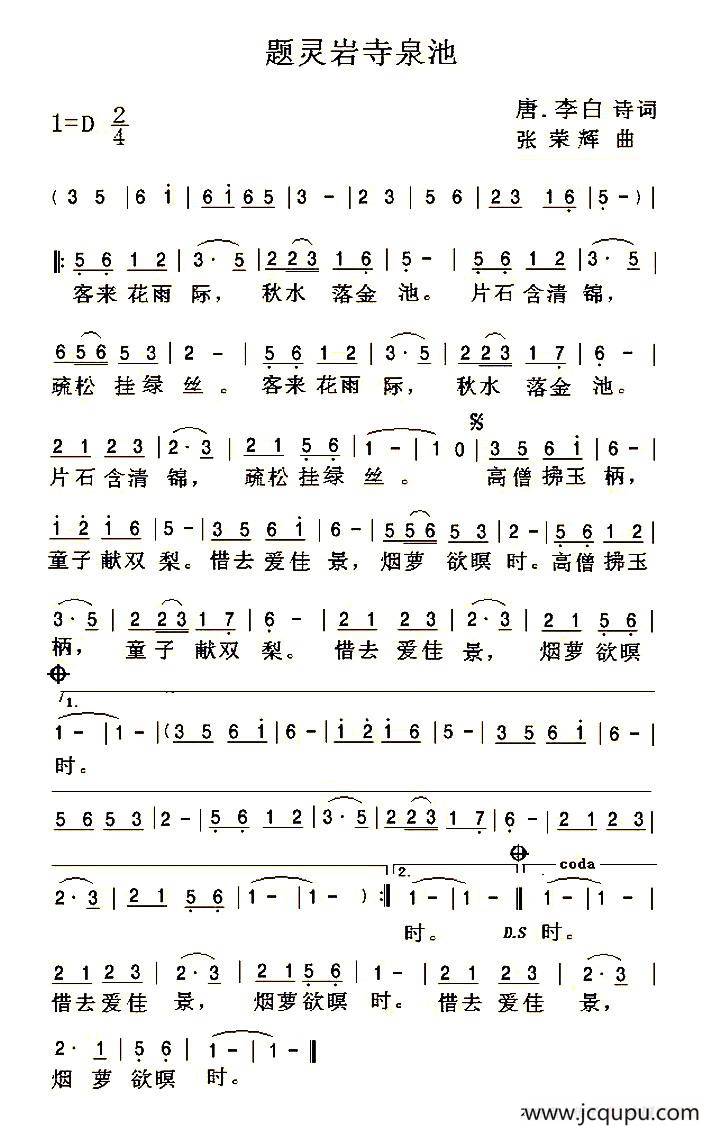 题灵岩寺泉池
1=D 2/4
唐.李白 诗词
张荣辉 曲
(3 5 | 6 i | 6i65 | 3 - | 2 3 | 5 6 | 23 16 | 5 - ) |
‖: 56 12 | 3· 5 | 223 16 | 5 - | 56 12 | 3· 5 |
客来 花雨 际, 秋水 落金 池。 片石 含清 锦,
656 53 | 2 - | 56 12 | 3· 5 | 223 17 | 6 - |
疏松 挂绿 丝。 客来 花雨 际, 秋水 落金 池。
21 23 | 2· 3 | 21 56 | 1 - | 1 0 | 35 6i | 6 - |
片石 含清 锦, 疏松 挂绿 丝。 高僧 拂玉 柄,
i2 i6 | 5 - | 35 6i | 6 - | 556 53 | 2 - | 56 12 |
童子 献双 梨。惜去 爱佳 景,烟萝 欲暝 时。高僧 拂玉
3· 5 | 223 17 | 6 - | 21 23 | 2· 3 | 21 56 |
柄, 童子 献双 梨。 惜去 爱佳 景, 烟萝 欲暝
1.
1 - | 1 - | (35 6i | 6 - | i2 i6 | 5 - | 35 6i | 6 - |
时。
56 53 | 2 - | 56 12 | 3· 5 | 223 17 | 6 - | 21 23 |
2. coda
2· 3 | 21 56 | 1 - | 1 - ) :‖ 1 - | 1 - ‖ 1 - | 1 - |
时。 D.S 时。
21 23 | 2· 3 | 21 56 | 1 - | 1 - | 21 23 | 2· 3 |
惜去 爱佳 景, 烟萝 欲暝 时。 惜去 爱佳 景,
2· 1 | 5 6 | 1 - | 1 - ‖
烟 萝 欲暝 时。
www.jcqupu.com